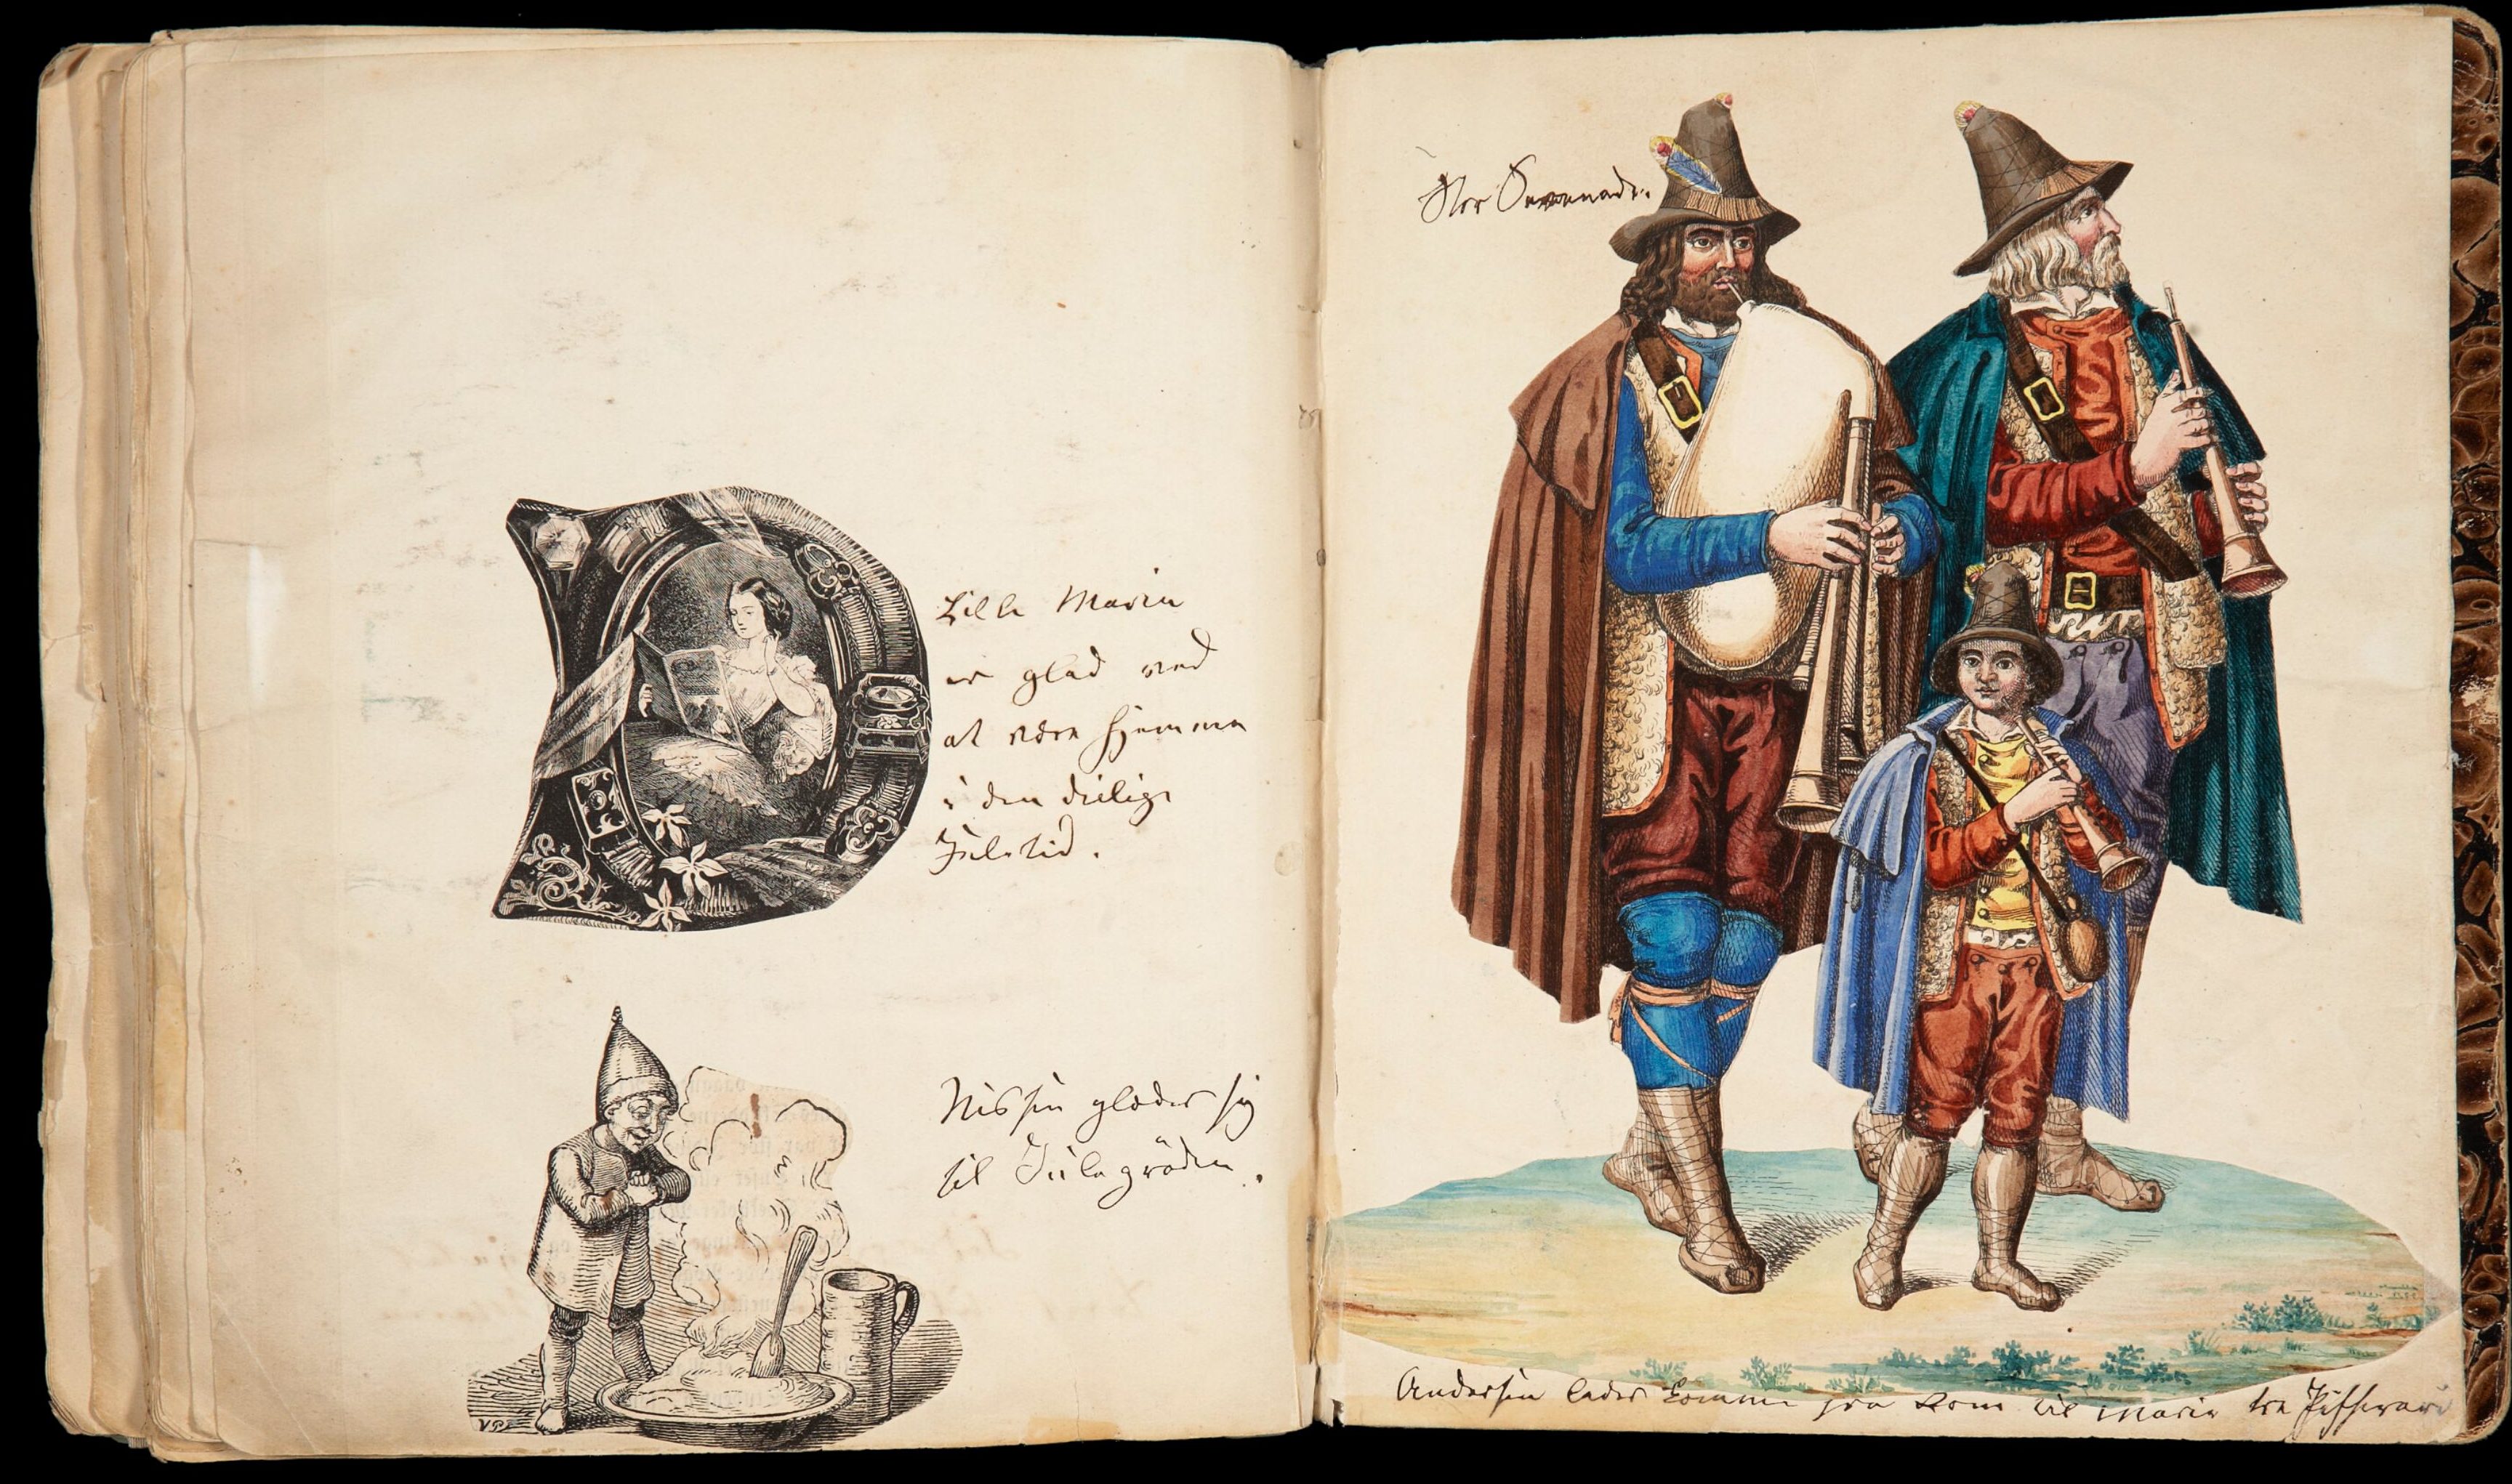 Lille Marie
er glad ved
at være hjemme
i den deilige
Juletid.
Nissen glæder sig
til Julegröden.
Stor Serenade.
Andersen lader komme fra Rom til Marie tre Pifferari
VP